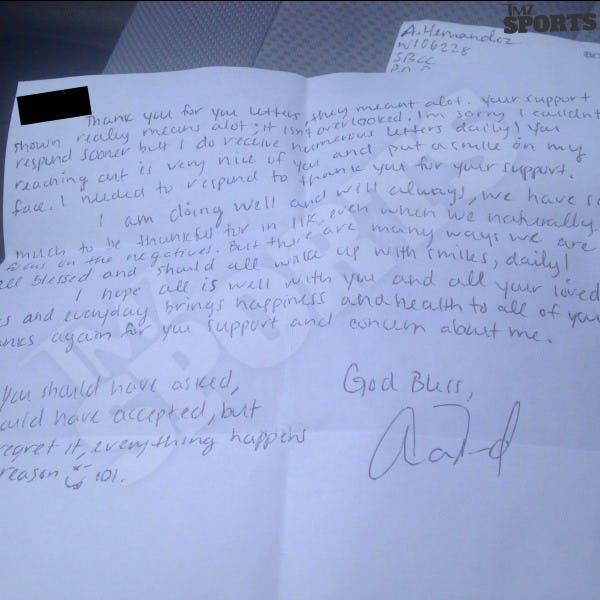 TMZ
SPORTS
A. Hernandez
W106228
SBCC
P.O. B
Thank you for you letters, they meant alot. Your support
shown really means alot; it isn't overlooked. I'm sorry I couldn't
respond sooner but I do receive numerous letters daily! You
reaching out is very nice of you and put a smile on my
face. I needed to respond to thank you for your support.
I am doing well and will always, we have so
much to be thankful for in life, even when we naturally
focus on the negatives. But there are many ways we are
all blessed and should all wake up with smiles, daily!
I hope all is well with you and all your loved
es and everyday brings happiness and health to all of you
anks again for you support and concern about me.
you should have asked,
ould have accepted, but
regret it, everything happens
reason lol.
God Bless,
TMZ
SPORTS